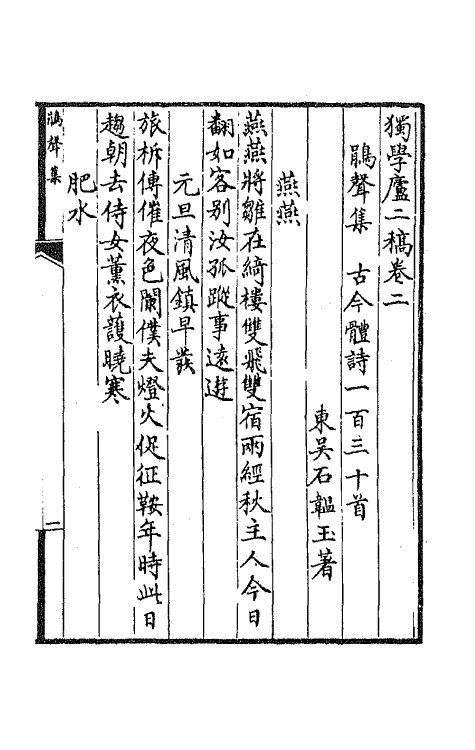 獨學廬二稿卷二
鵑聲集　古今體詩一百三十首
東吳石韞玉著
燕燕
燕燕將雛在綺樓雙飛雙宿兩經秋主人今日
翻如客别汝孤蹤事遠遊
元旦清風鎮早發
旅柝傳催夜色闌僕夫燈火促征鞍年時此日
趨朝去侍女薰衣護曉寒
肥水
鵑聲集
一